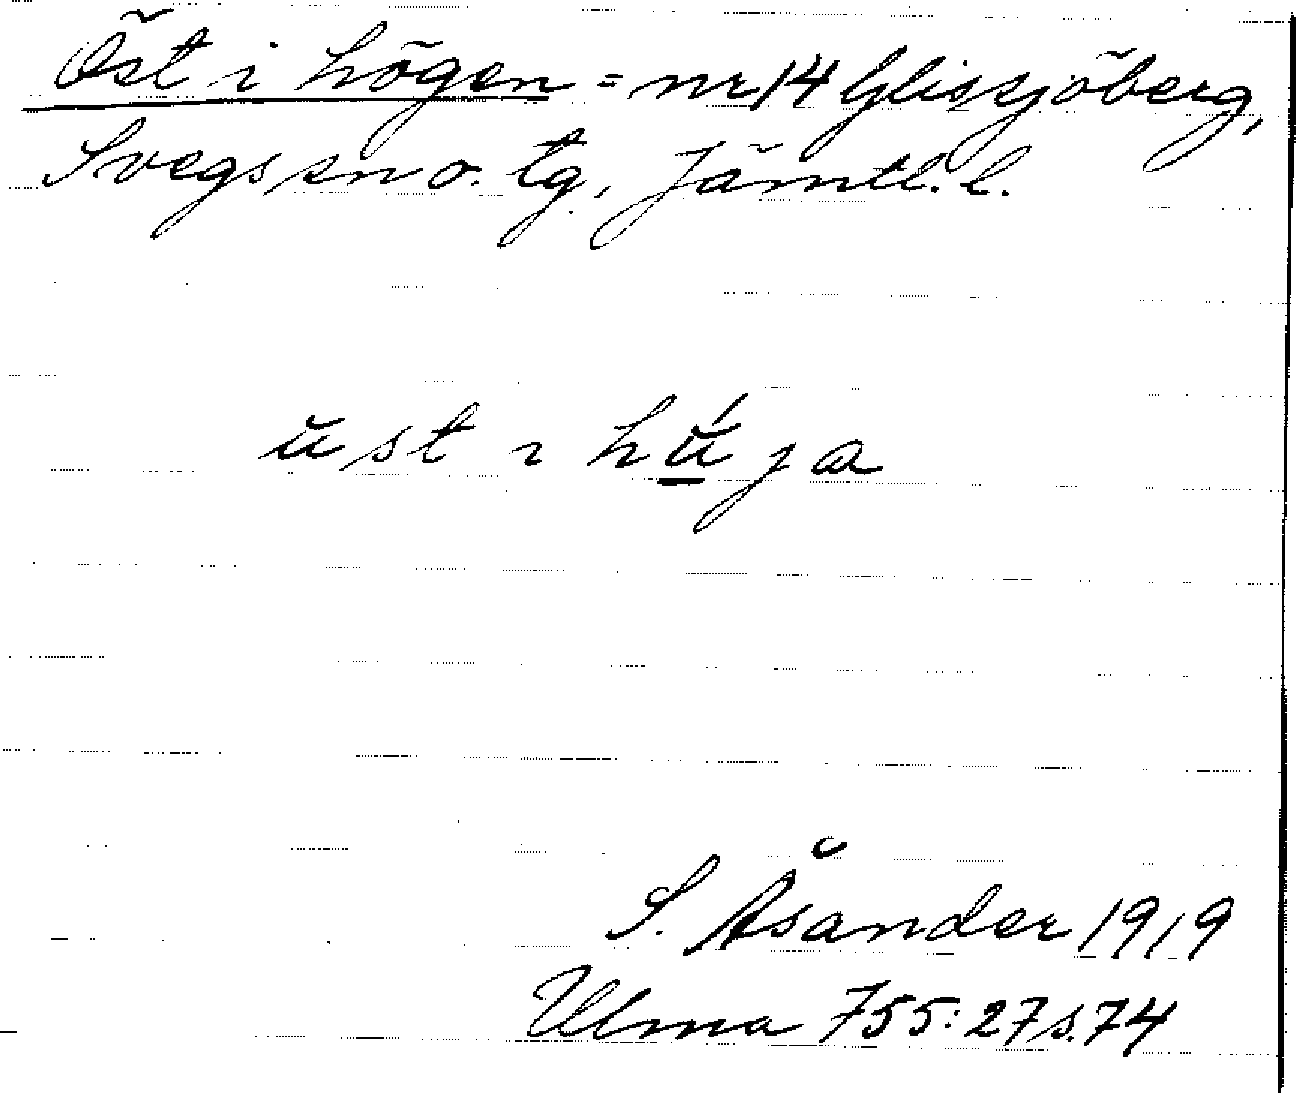 Öst i högen = nr 14 Glissjöberg,
Svegs sn o. tg, Jämtl. l.
ŭst ı hŭ́ja
S. Åsander 1919
Ulma 755:27 s. 74